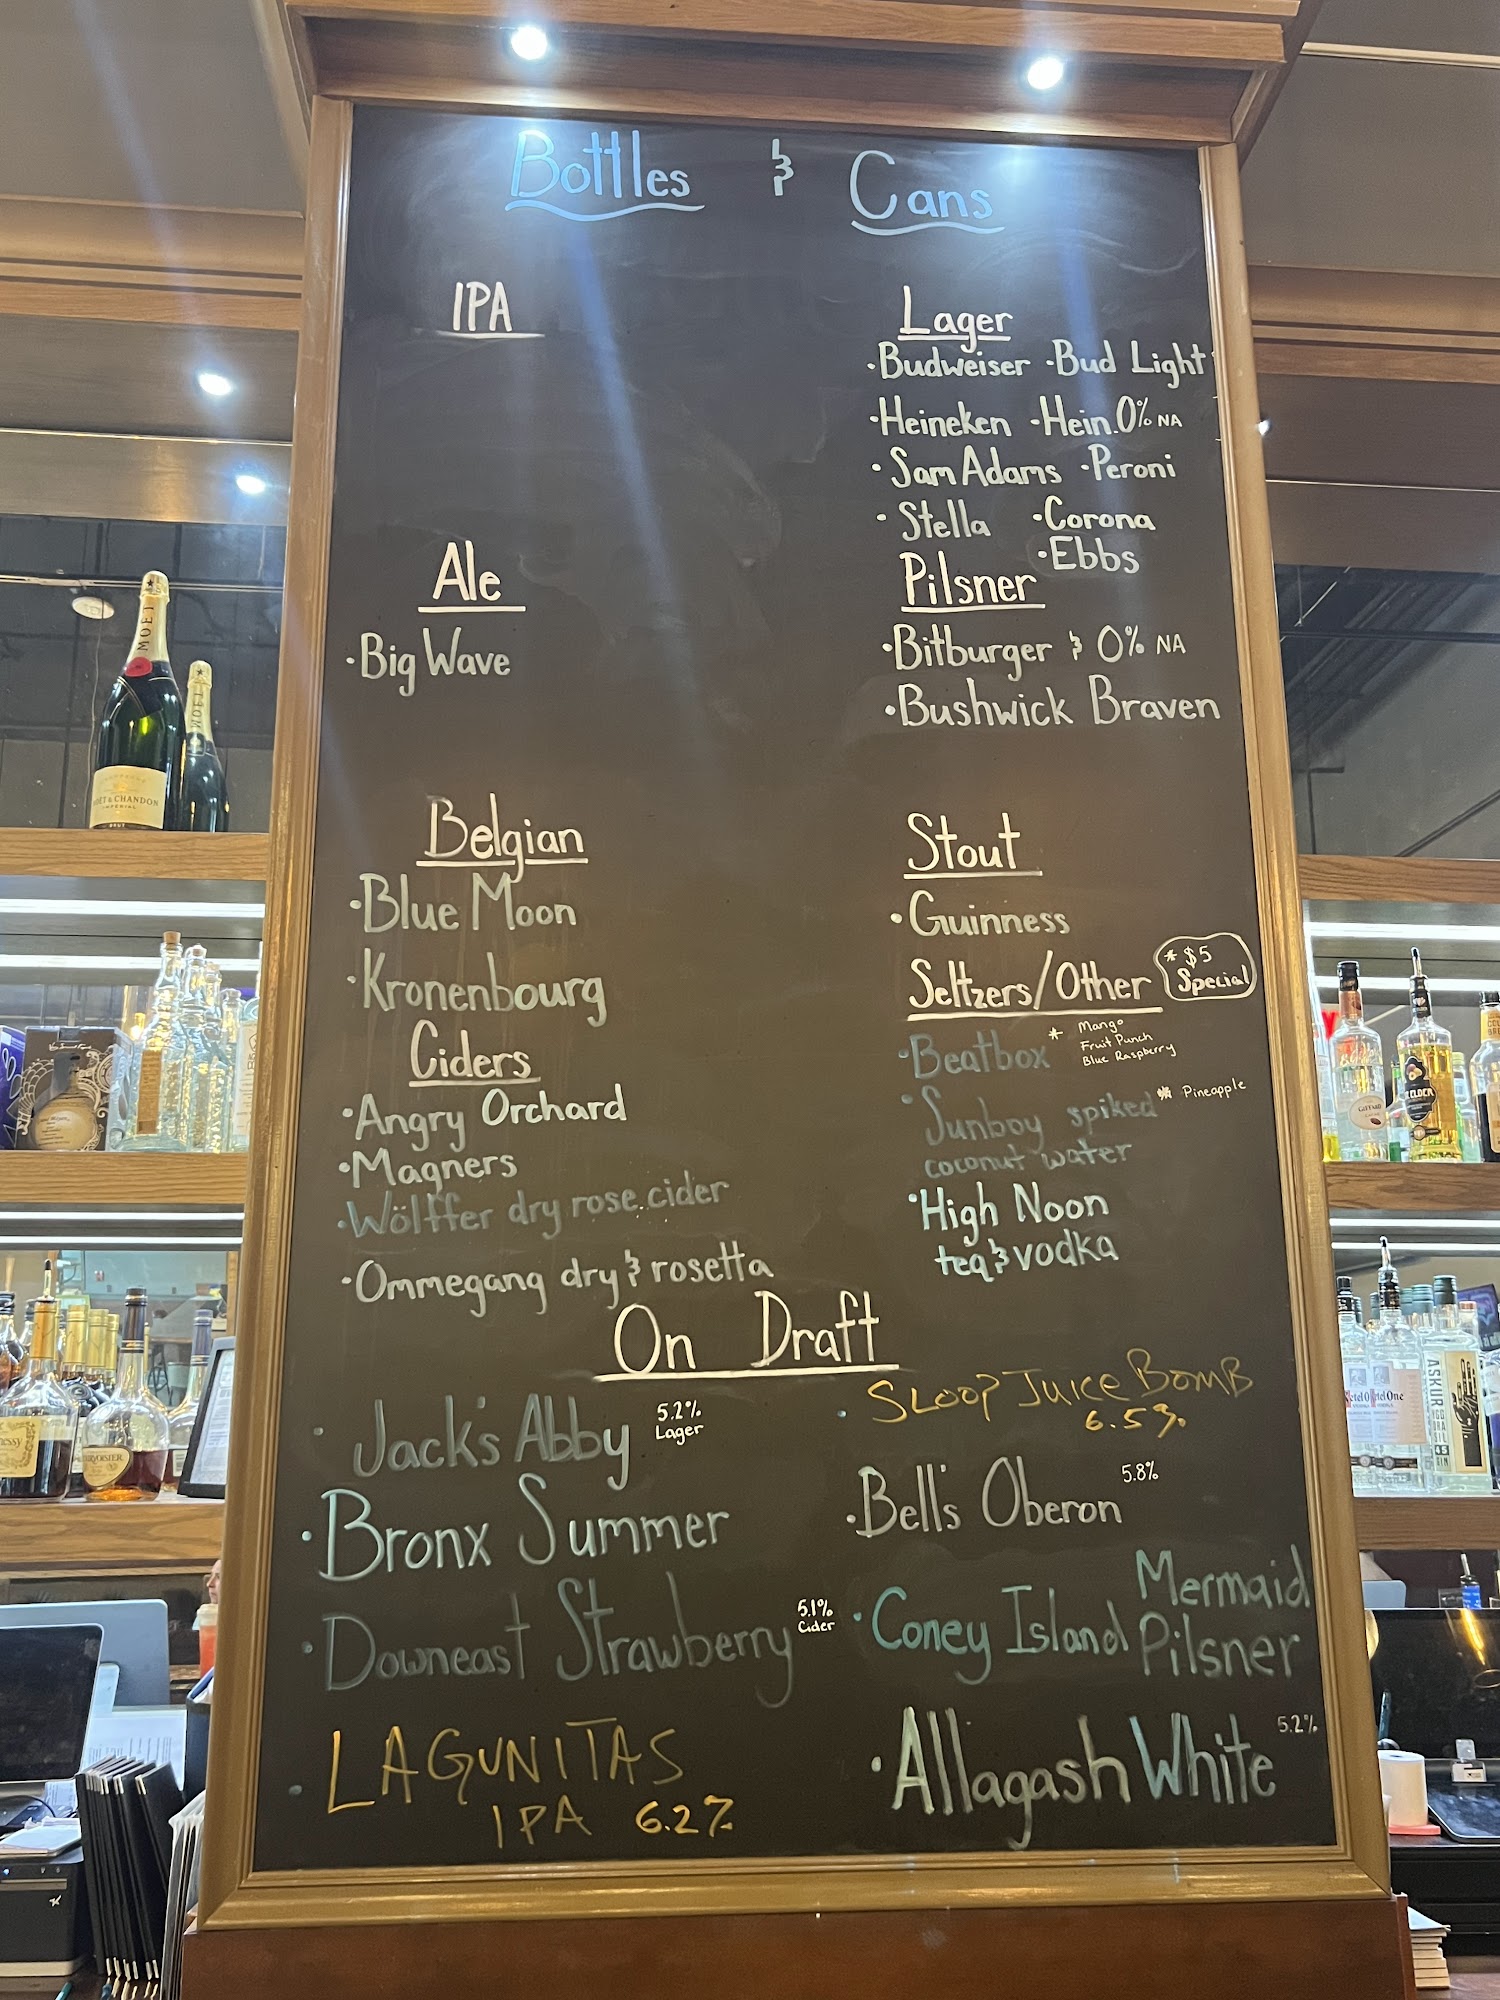 Bottles & Cans
IPA
Ale
·Big Wave
Belgian
·Blue Moon
·Kronenbourg
Ciders
·Angry Orchard
·Magners
·Wölffer dry rose cider
·Ommegang dry & rosetta
Lager
·Budweiser ·Bud Light
·Heineken ·Hein.0% NA
·Sam Adams ·Peroni
·Stella ·Corona
·Ebbs
Pilsner
·Bitburger & 0% NA
·Bushwick Braven
Stout
·Guinness
Seltzers/Other
* $5
Special
·Beatbox *
Mango
Fruit Punch
Blue Raspberry
·Sunboy spiked * Pineapple
coconut water
·High Noon
tea & vodka
On Draft
·Jack's Abby 5.2%
Lager
·Bronx Summer
·Downeast Strawberry 5.1%
Cider
·LAGUNITAS
IPA 6.2%
·SLOOP JUICE BOMB
6.5%
·Bell's Oberon 5.8%
·Coney Island Mermaid
Pilsner
·Allagash White 5.2%
MOËT
MOËT
MOËT & CHANDON
IMPERIAL
BRUT
Ketel One
Ketel One
ASKUR